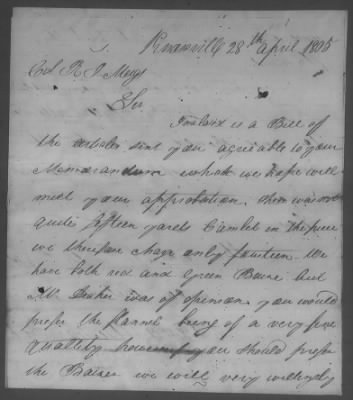 Knoxville 28th April 1805
Col. R. J. Meigs
Sir
Inclosd is a Bill of
the articles sent you agreeable to your
Memorandum which we hope will
meet your approbation. there was not
quite fifteen yards Camblet in the piece
we therefore charge only fourteen. We
have both red and Green Baize but
Mr. was of opinion you would
prefer the flannel being of a very fine
quallity however if you should prefer
the Baize we will very willingly